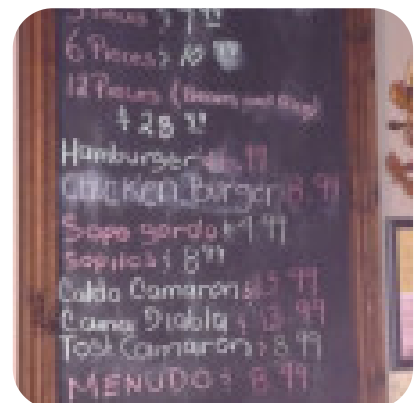 6 Pieces $ 10
12 Pieces (Beans and Rice)
$ 28
Hamburger .99
Chicken Burger 8.99
Sopa gorda $ 4.99
Sopitos $ 8.99
Caldo Camaron $ 15.99
Cama Diabla $ 13.99
Tost Camaron $ 8.99
MENUDO $ 8.99